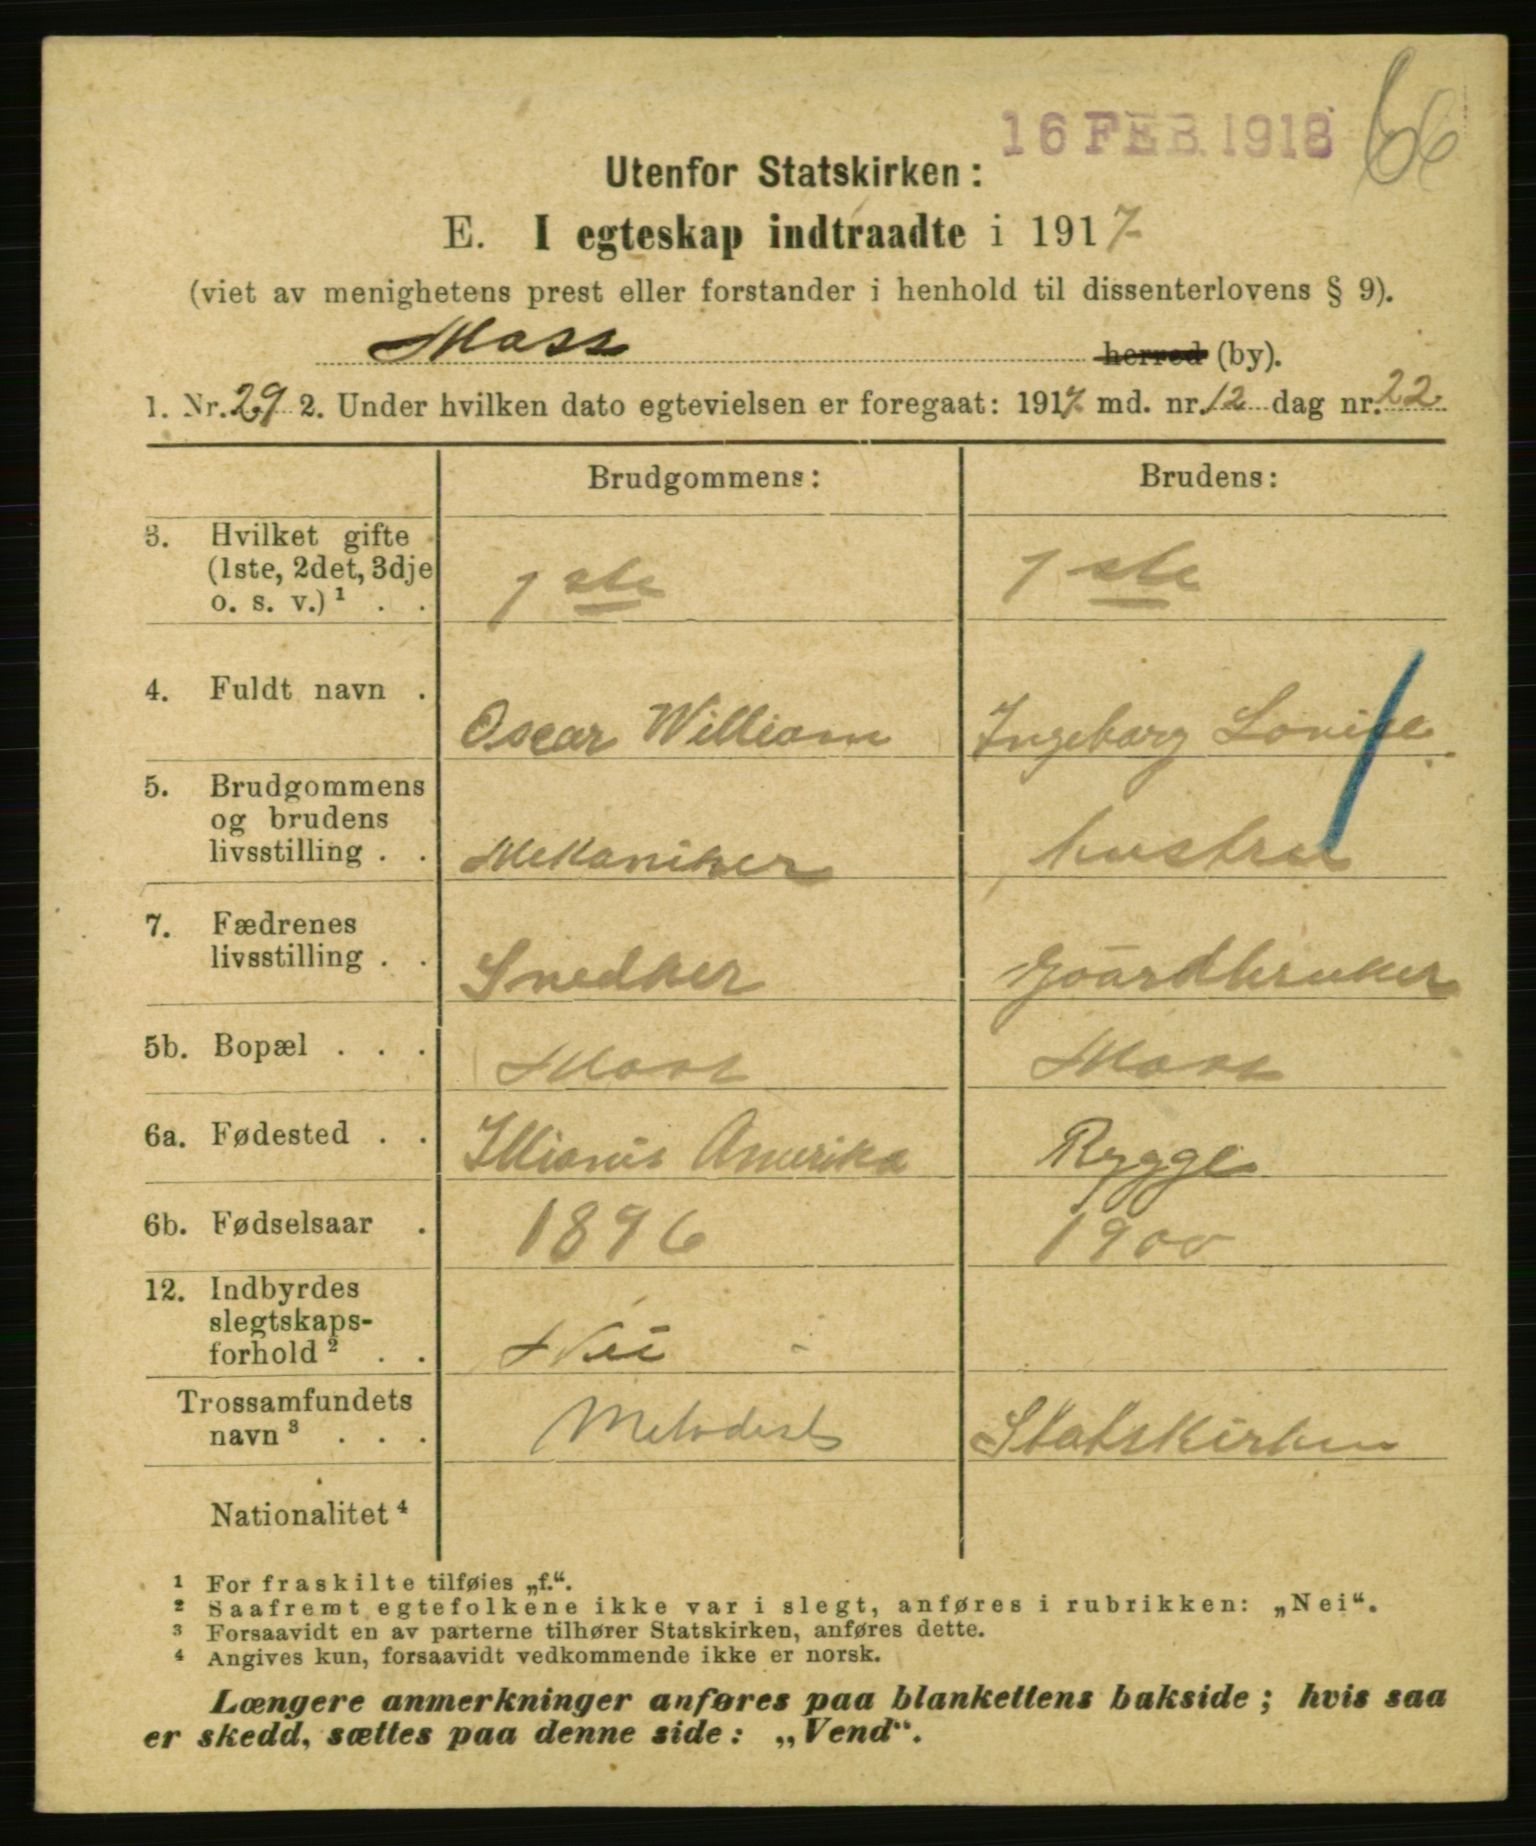 16 FEB. 1918 66
Utenfor Statskirken:
E. I egteskap indtraadte i 1917
(viet av menighetens prest eller forstander i henhold til dissenterlovens § 9).
Moss herred (by).
1. Nr. 29 2. Under hvilken dato egtevielsen er foregaat: 1917 md. nr. 12 dag nr. 22
Brudgommens: Brudens:
3. Hvilket gifte
(1ste, 2det, 3dje
o. s. v.) ¹ . . 1 ste 1 ste
4. Fuldt navn . Oscar William Ingeborg Lovise
5. Brudgommens
og brudens
livsstilling . . Mekaniker hustru
7. Fædrenes
livsstilling . . Snedker Gaardbruker
5b. Bopæl . . . Moss Moss
6a. Fødested . . Illionis Amerika Rygge
6b. Fødselsaar . 1896 1900
12. Indbyrdes
slegtskaps-
forhold ² . . Nei -
Trossamfundets
navn ³ . . . Metodist Statskirken
Nationalitet ⁴
¹ For fraskilte tilføies „f.“.
² Saafremt egtefolkene ikke var i slegt, anføres i rubrikken: „Nei“.
³ Forsaavidt en av parterne tilhører Statskirken, anføres dette.
⁴ Angives kun, forsaavidt vedkommende ikke er norsk.
Længere anmerkninger anføres paa blankettens bakside; hvis saa
er skedd, sættes paa denne side: „Vend“.